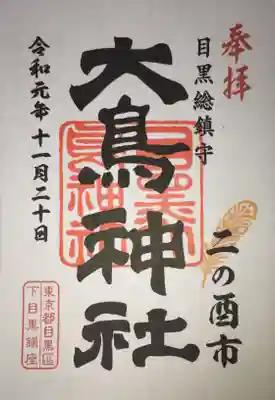 奉拝
目黒総鎮守
二の酉市
大鳥神社
令和元年十一月二十日
東京都目黒區
下目黒鎮座